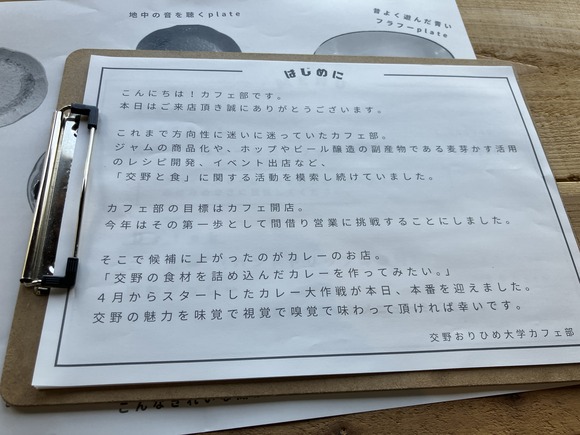 地中の音を聴くplate
昔よく遊んだ青い
フラフーplate
はじめに
こんにちは！カフェ部です。
本日はご来店頂き誠にありがとうございます。
これまで方向性に迷いに迷っていたカフェ部。
ジャムの商品化や、ホップやビール醸造の副産物である麦芽かす活用
のレシピ開発、イベント出店など、
「交野と食」に関する活動を模索し続けていました。
カフェ部の目標はカフェ開店。
今年はその第一歩として間借り営業に挑戦することにしました。
そこで候補に上がったのがカレーのお店。
「交野の食材を詰め込んだカレーを作ってみたい。」
４月からスタートしたカレー大作戦が本日、本番を迎えました。
交野の魅力を味覚で視覚で嗅覚で味わって頂ければ幸いです。
交野おりひめ大学カフェ部